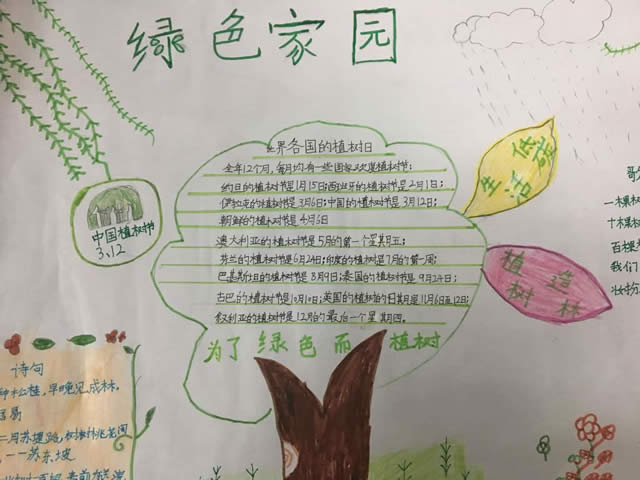 绿色家园
世界各国的植树日
全年12个月,每月均有一些国家欢度植树节:
约旦的植树节是1月15日;西班牙的植树节是2月1日;
伊拉克的植树节是3月6日;中国的植树节是3月12日;
朝鲜的植树节是4月6日
澳大利亚的植树节是5月的第一个星期五;
芬兰的植树节是6月24日;印度的植树节是7月的第一周;
巴基斯坦的植树节是8月9日;泰国的植树节是9月24日;
古巴的植树节是10月10日;英国的植树节的日期是11月6日至12日;
叙利亚的植树节是12月的最后一个星期四。
为了绿色而植树
中国植树节
3、12
低碳
生活
植造
树林
诗句
种松桂,早晚见成林,
居易
——苏东坡
一棵树
十棵树
百棵
我们
妆扮